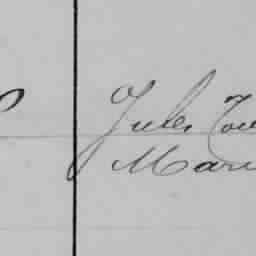 Jules Tou
Mari